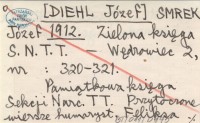 [DIEHL Józef] SMREK
Józef 1912. Zielona księga
S.N.T.T. — Wędrowiec 2,
nr : 320-321.
Pamiątkowa księga
Sekcji Narc. T.T. Przytoczone
wiersze humoryst. Feliksa